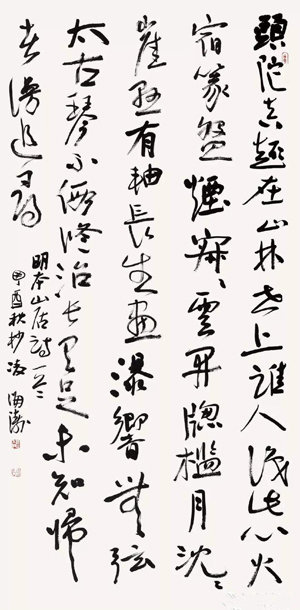 頭陀真趣在山林世上誰人識此心火
宿篆盤煙寂〻雲開牕檻月沈〻
崖懸有軸長生畫瀑響無弦
太古琴不假修治常具足未知歸
者漫追尋
明本山居詩
酉秋杪海濤